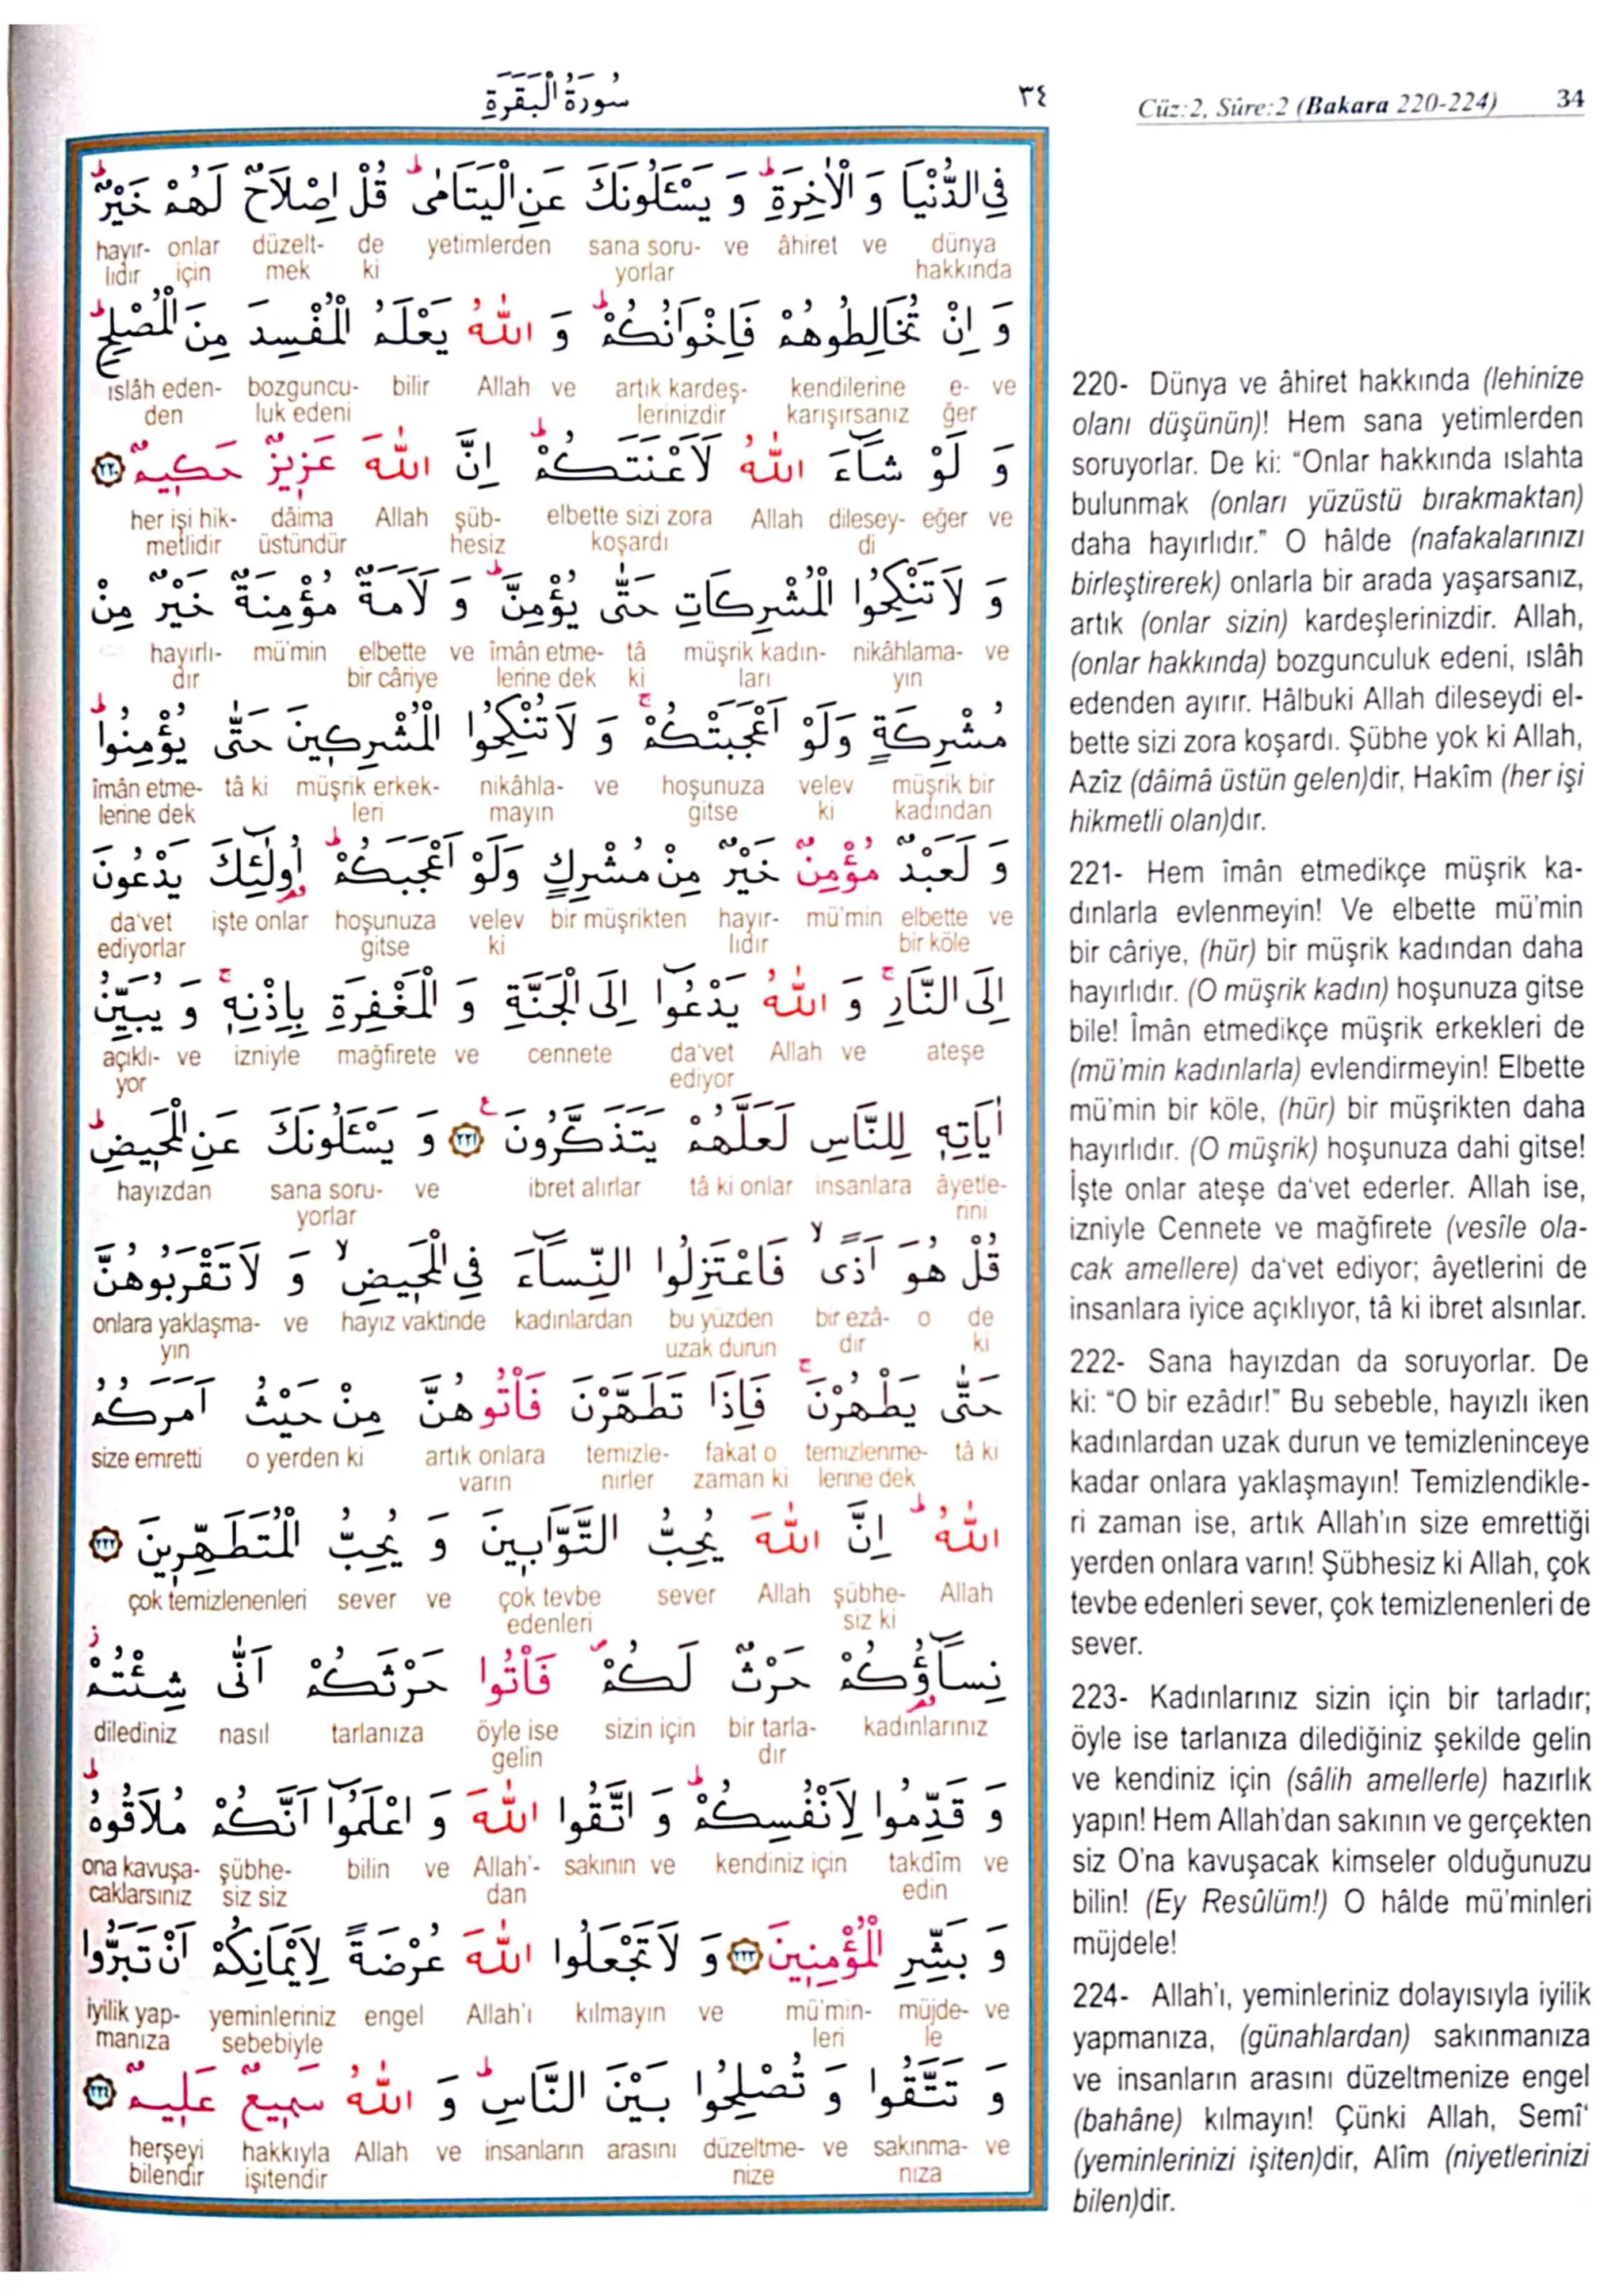 سُورَةُ الْبَقَرَةِ
٣٤
Cüz:2, Sûre:2 (Bakara 220-224) 34
فِي الدُّنْيَا وَ الْاٰخِرَةِۜ وَ يَسْـَٔلُونَكَ عَنِ الْيَتَامٰىۜ قُلْ اِصْلَاحٌ لَهُمْ خَيْرٌۜ
hayır- onlar düzelt- de yetimlerden sana soru- ve âhiret ve dünya
lıdır için mek ki yorlar hakkında
وَ اِنْ تُخَالِطُوهُمْ فَاِخْوَانُكُمْۜ وَ اللّٰهُ يَعْلَمُ الْمُفْسِدَ مِنَ الْمُصْلِحِۜ
ıslâh eden- bozguncu- bilir Allah ve artık kardeş- kendilerine e- ve
den luk edeni lerinizdir karışırsanız ğer
وَ لَوْ شَٓاءَ اللّٰهُ لَاَعْنَتَكُمْۜ اِنَّ اللّٰهَ عَزِيزٌ حَكِيمٌ ٢٢٠
her işi hik- dâima Allah şüb- elbette sizi zora Allah dilesey- eğer ve
metlidir üstündür hesiz koşardı di
وَ لَا تَنْكِحُوا الْمُشْرِكَاتِ حَتّٰى يُؤْمِنَّۜ وَ لَاَمَةٌ مُؤْمِنَةٌ خَيْرٌ مِنْ
hayırlı- mü'min elbette ve îmân etme- tâ müşrik kadın- nikâhlama- ve
dır bir câriye lerine dek ki ları yın
مُشْرِكَةٍ وَلَوْ اَعْجَبَتْكُمْۚ وَ لَا تُنْكِحُوا الْمُشْرِكِينَ حَتّٰى يُؤْمِنُواۜ
îmân etme- tâ ki müşrik erkek- nikâhla- ve hoşunuza velev müşrik bir
lerine dek leri mayın gitse ki kadından
وَ لَعَبْدٌ مُؤْمِنٌ خَيْرٌ مِنْ مُشْرِكٍ وَلَوْ اَعْجَبَكُمْۜ اُولٰٓئِكَ يَدْعُونَ
da'vet işte onlar hoşunuza velev bir müşrikten hayır- mü'min elbette ve
ediyorlar gitse ki lıdır bir köle
اِلَى النَّارِۚ وَ اللّٰهُ يَدْعُٓوا اِلَى الْجَنَّةِ وَ الْمَغْفِرَةِ بِاِذْنِهٖۚ وَ يُبَيِّنُ
açıklı- ve izniyle mağfirete ve cennete da'vet Allah ve ateşe
yor ediyor
اٰيَاتِهٖ لِلنَّاسِ لَعَلَّهُمْ يَتَذَكَّرُونَ ٢٢١ وَ يَسْـَٔلُونَكَ عَنِ الْمَحِيضِۜ
hayızdan sana soru- ve ibret alırlar tâ ki onlar insanlara âyetle-
yorlar rini
قُلْ هُوَ اَذًىۙ فَاعْتَزِلُوا النِّسَٓاءَ فِي الْمَحِيضِۙ وَ لَا تَقْرَبُوهُنَّ
onlara yaklaşma- ve hayız vaktinde kadınlardan bu yüzden bir ezâ- o de
yın uzak durun dır ki
حَتّٰى يَطْهُرْنَۚ فَاِذَا تَطَهَّرْنَ فَأْتُوهُنَّ مِنْ حَيْثُ اَمَرَكُمُ
size emretti o yerden ki artık onlara temizle- fakat o temizlenme- tâ ki
varın nirler zaman ki lerine dek
اللّٰهُۜ اِنَّ اللّٰهَ يُحِبُّ التَّوَّابِينَ وَ يُحِبُّ الْمُتَطَهِّرِينَ ٢٢٢
çok temizlenenleri sever ve çok tevbe sever Allah şübhe- Allah
edenleri siz ki
نِسَٓاؤُكُمْ حَرْثٌ لَكُمْ فَأْتُوا حَرْثَكُمْ اَنّٰى شِئْتُمْۘ
dilediniz nasıl tarlanıza öyle ise sizin için bir tarla- kadınlarınız
gelin dır
وَ قَدِّمُوا لِاَنْفُسِكُمْۜ وَ اتَّقُوا اللّٰهَ وَ اعْلَمُٓوا اَنَّكُمْ مُلَاقُوهُۜ
ona kavuşa- şübhe- bilin ve Allah'- sakının ve kendiniz için takdîm ve
caklarsınız siz siz dan edin
وَ بَشِّرِ الْمُؤْمِنِينَ ٢٢٣ وَ لَا تَجْعَلُوا اللّٰهَ عُرْضَةً لِاَيْمَانِكُمْ اَنْ تَبَرُّوا
iyilik yap- yeminleriniz engel Allah'ı kılmayın ve mü'min- müjde- ve
manıza sebebiyle leri le
وَ تَتَّقُوا وَ تُصْلِحُوا بَيْنَ النَّاسِۜ وَ اللّٰهُ سَمِيعٌ عَلِيمٌ ٢٢٤
herşeyi hakkıyla Allah ve insanların arasını düzeltme- ve sakınma- ve
bilendir işitendir nize nıza
220- Dünya ve âhiret hakkında (lehinize
olanı düşünün)! Hem sana yetimlerden
soruyorlar. De ki: "Onlar hakkında ıslahta
bulunmak (onları yüzüstü bırakmaktan)
daha hayırlıdır." O hâlde (nafakalarınızı
birleştirerek) onlarla bir arada yaşarsanız,
artık (onlar sizin) kardeşlerinizdir. Allah,
(onlar hakkında) bozgunculuk edeni, ıslâh
edenden ayırır. Hâlbuki Allah dileseydi el-
bette sizi zora koşardı. Şübhe yok ki Allah,
Azîz (dâimâ üstün gelen)dir, Hakîm (her işi
hikmetli olan)dır.
221- Hem îmân etmedikçe müşrik ka-
dınlarla evlenmeyin! Ve elbette mü'min
bir câriye, (hür) bir müşrik kadından daha
hayırlıdır. (O müşrik kadın) hoşunuza gitse
bile! Îmân etmedikçe müşrik erkekleri de
(mü'min kadınlarla) evlendirmeyin! Elbette
mü'min bir köle, (hür) bir müşrikten daha
hayırlıdır. (O müşrik) hoşunuza dahi gitse!
İşte onlar ateşe da'vet ederler. Allah ise,
izniyle Cennete ve mağfirete (vesîle ola-
cak amellere) da'vet ediyor; âyetlerini de
insanlara iyice açıklıyor, tâ ki ibret alsınlar.
222- Sana hayızdan da soruyorlar. De
ki: "O bir ezâdır!" Bu sebeble, hayızlı iken
kadınlardan uzak durun ve temizleninceye
kadar onlara yaklaşmayın! Temizlendikle-
ri zaman ise, artık Allah'ın size emrettiği
yerden onlara varın! Şübhesiz ki Allah, çok
tevbe edenleri sever, çok temizlenenleri de
sever.
223- Kadınlarınız sizin için bir tarladır;
öyle ise tarlanıza dilediğiniz şekilde gelin
ve kendiniz için (sâlih amellerle) hazırlık
yapın! Hem Allah'dan sakının ve gerçekten
siz O'na kavuşacak kimseler olduğunuzu
bilin! (Ey Resûlüm!) O hâlde mü'minleri
müjdele!
224- Allah'ı, yeminleriniz dolayısıyla iyilik
yapmanıza, (günahlardan) sakınmanıza
ve insanların arasını düzeltmenize engel
(bahâne) kılmayın! Çünki Allah, Semî'
(yeminlerinizi işiten)dir, Alîm (niyetlerinizi
bilen)dir.